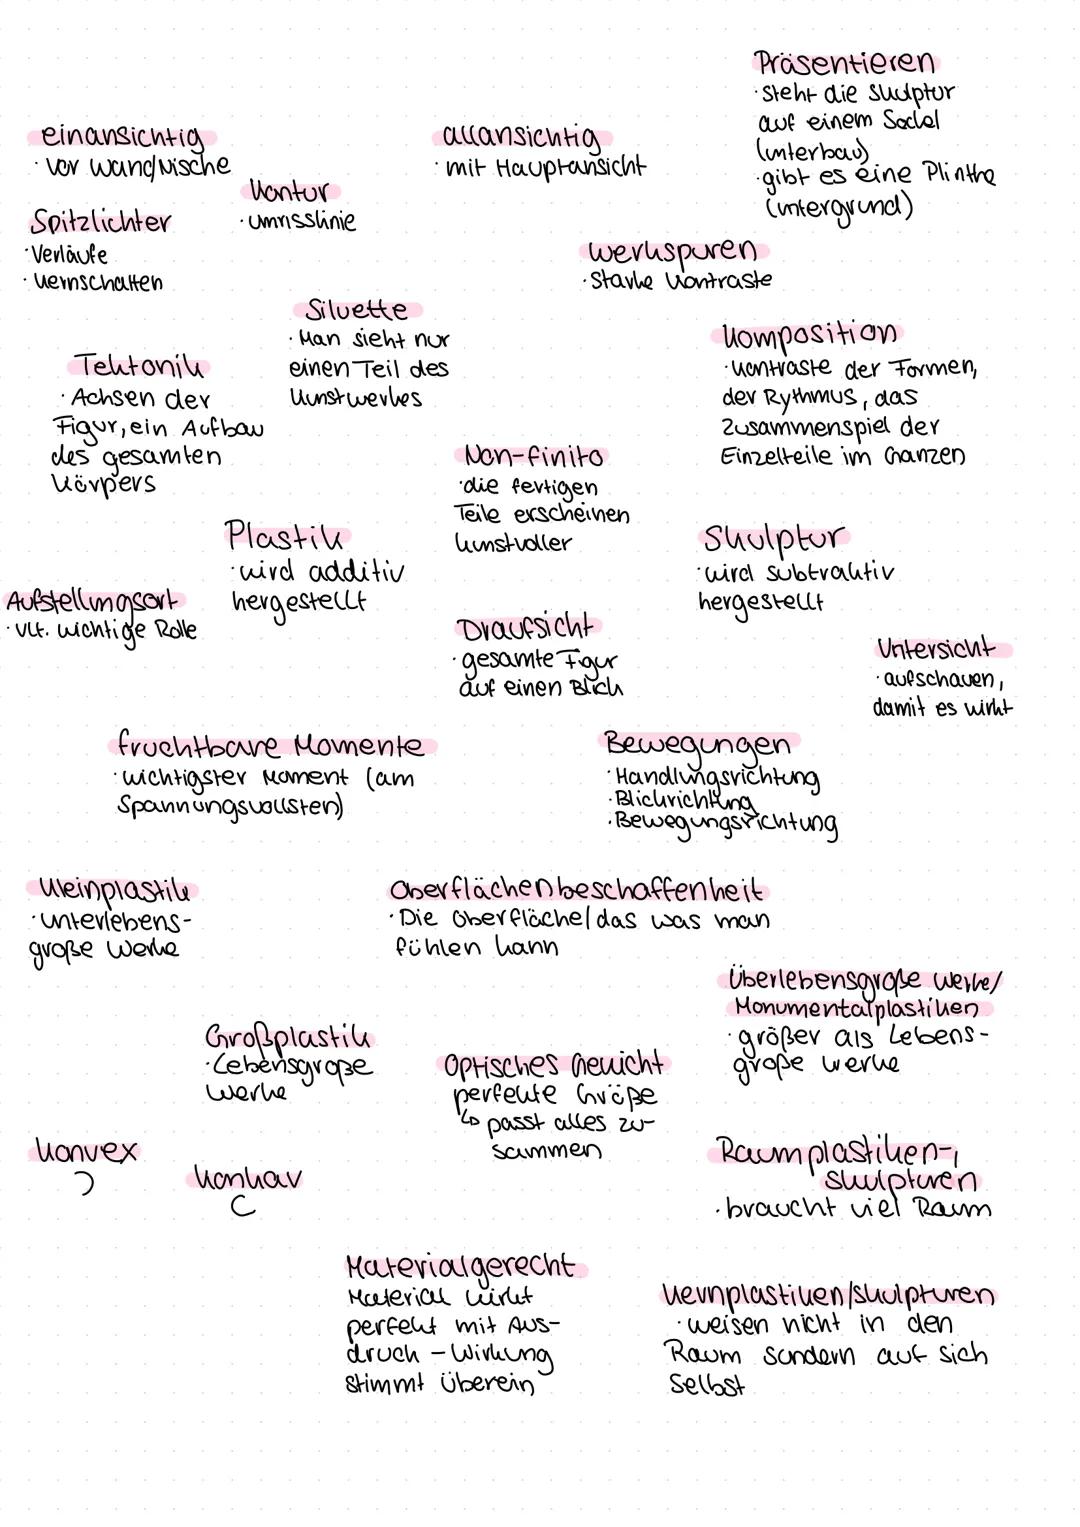 Präsentieren
· steht die Skulptur
auf einem Sockel
(unterbau)
· gibt es eine Plinthe
(untergrund)
einansichtig
· vor Wand/Nische
allansichtig
· mit Hauptansicht
Kontur
· umrisslinie
Spitzlichter
· Verläufe
· Kernschatten
Werkspuren
· Starke Kontraste
Siluette
· Man sieht nur
einen Teil des
Kunstwerkes
Komposition
· Kontraste der Formen,
der Rythmus, das
Zusammenspiel der
Einzelteile im Ganzen
Tektonik
· Achsen der
Figur, ein Aufbau
des gesamten
Körpers
Non-finito
· die fertigen
Teile erscheinen
kunstvoller
Plastik
· wird additiv
hergestellt
Skulptur
· wird subtraktiv
hergestellt
Aufstellungsort
· vlt. wichtige Rolle
Draufsicht
· gesamte Figur
auf einen Blick
Untersicht
· aufschauen,
damit es wirkt
fruchtbare Momente
· wichtigster Moment (am
Spannungsvollsten)
Bewegungen
· Handlungsrichtung
· Blickrichtung
· Bewegungsrichtung
Kleinplastik
· unterlebens-
große Werke
Oberflächenbeschaffenheit
· Die Oberfläche/das was man
fühlen kann
Überlebensgroße Werke/
Monumentalplastiken
· größer als Lebens-
große Werke
Großplastik
· Lebensgroße
Werke
Optisches Gewicht
perfekte Größe
↳ passt alles zu-
sammen
konvex
konkav
Raumplastiken-,
skulpturen
· braucht viel Raum
Materialgerecht
Material wirkt
perfekt mit Aus-
druck - Wirkung
stimmt überein
Kernplastiken/skulpturen
· weisen nicht in den
Raum sondern auf sich
Selbst